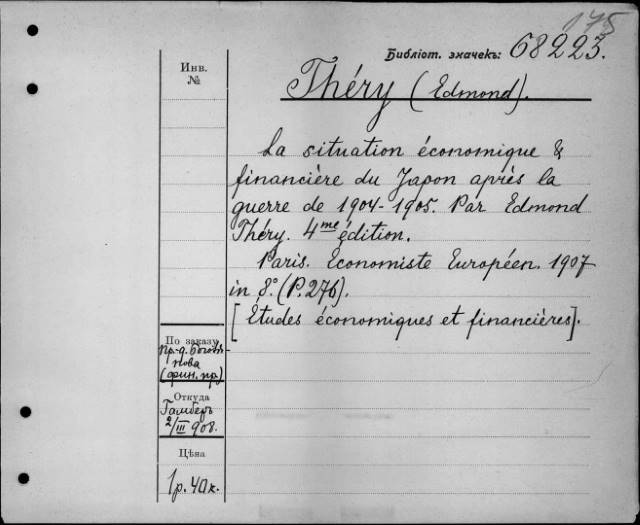 175
Библіот. значекъ: 68223.
Инв.
№
Théry (Edmond).
La situation économique &
financière du Japon après la
guerre de 1904-1905. Par Edmond
Théry. 4me édition.
Paris. Economiste Européen. 1907
in 8°. (P. 276).
[Études économiques et financières].
По заказу
пр-д.
нова
(фин. пр)
Откуда
Гамберъ
2/III 908.
Цѣна
1 р. 40 к.